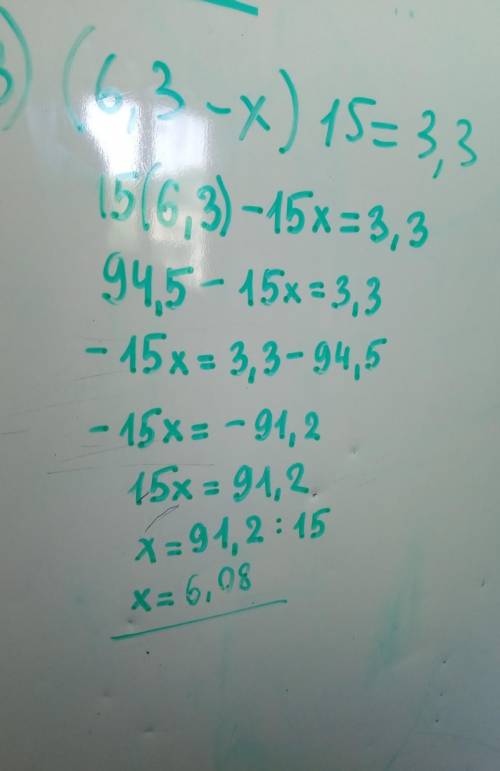 ) (6,3 - x) 15 = 3,3
15(6,3) - 15x = 3,3
94,5 - 15x = 3,3
- 15x = 3,3 - 94,5
- 15x = - 91,2
15x = 91,2
x = 91,2 : 15
x = 6,08